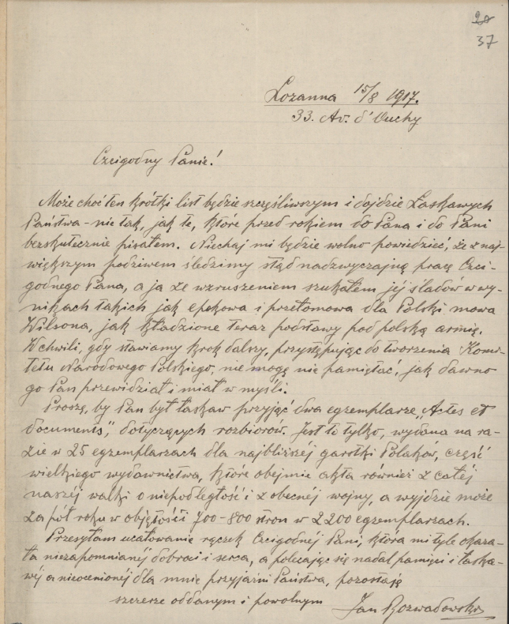 20
37
Lozanna 15/8 1917.
33. Av. d'Ouchy
Czcigodny Panie!
Może choć ten krótki list będzie szczęśliwszym i dojdzie Łaskawych
Państwa - nie tak, jak te, które przed rokiem do Pana i do Pani
bezskutecznie pisałem. Niechaj mi będzie wolno powiedzieć, że z naj-
większym podziwem śledzimy stąd nadzwyczajną pracę Czci-
godnego Pana, a ja ze wzruszeniem szukałem jej śladów w wy-
nikach takich jak epokowa i przełomowa dla Polski mowa
Wilsona, jak kładzione teraz podstawy pod polską armię.
W chwili, gdy stawiamy krok dalszy, przystępując do tworzenia Komi-
tetu Narodowego Polskiego, nie mogę nie pamiętać, jak dawno
go Pan przewidział i miał w myśli.
Proszę, by Pan był łaskaw przyjąć dwa egzemplarze „Actes et
documents", dotyczących rozbiorów. Jest to tylko, wydana na ra-
zie w 25 egzemplarzach dla najbliższej garstki Polaków, część
wielkiego wydawnictwa, które obejmie akta również z całej
naszej walki o niepodległość i z obecnej wojny, a wyjdzie może
za pół roku w objętości 700-800 stron w 2200 egzemplarzach.
Przesyłam ucałowanie rączek Czcigodnej Pani, która mi tyle okaza-
ła niezapomnianej dobroci i serca, a polecając się nadal pamięci i łaska-
wej a nieocenionej dla mnie przyjaźni Państwa, pozostaję
szczerze oddanym i powolnym Jan Rozwadowski